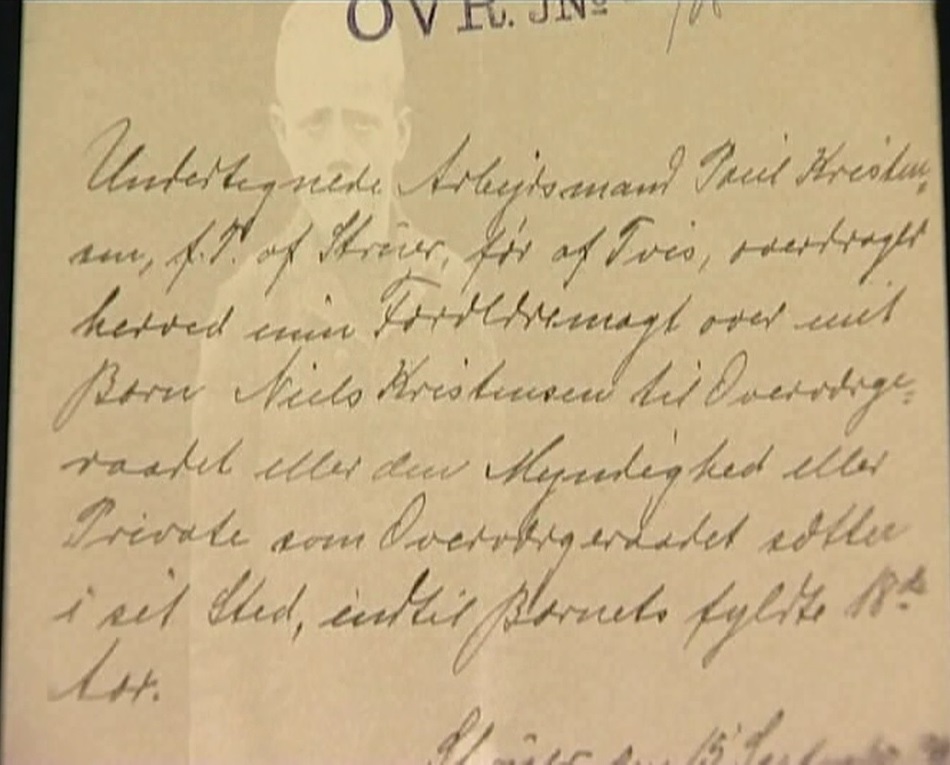 OVR. JNo
Undertegnede Arbejdsmand Poul Kristen-
sen, f.T. af Struer, før af Tvis, overdrager
herved min Forældremagt over mit
Barn Niels Kristensen til Overværge-
raadet eller den Myndighed eller
Private som Overværgeraadet sætter
i sit Sted, indtil Barnets fyldte 18de
Aar.
Struer den 15 September